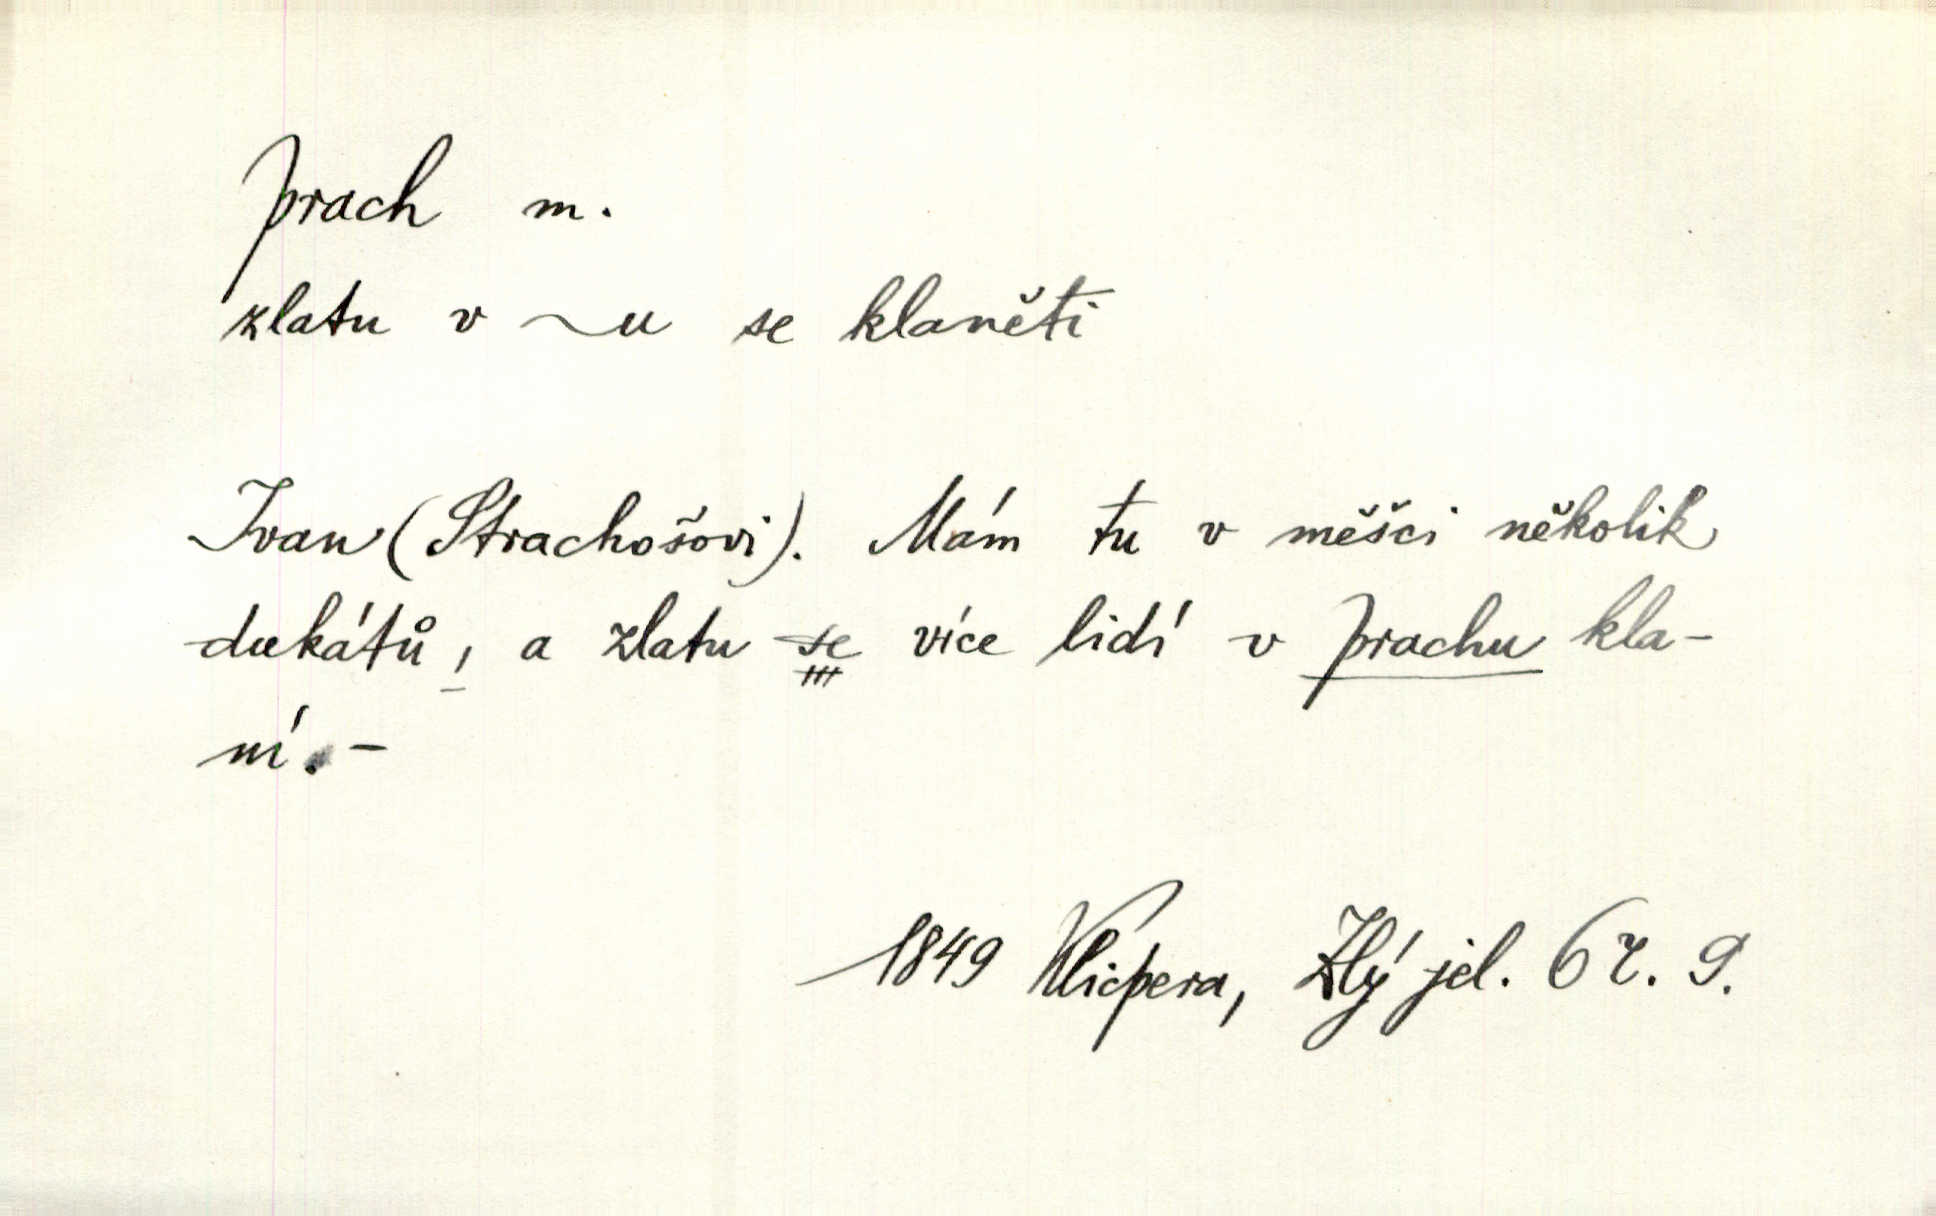 prach m.
zlatu v ~u se klaněti
Ivan (Strachošovi). Mám tu v měšci několik
dukátů, a zlatu se více lidí v prachu kla-
ní. -
1849 Klicpera, Zlý jel. 6 r. 9.